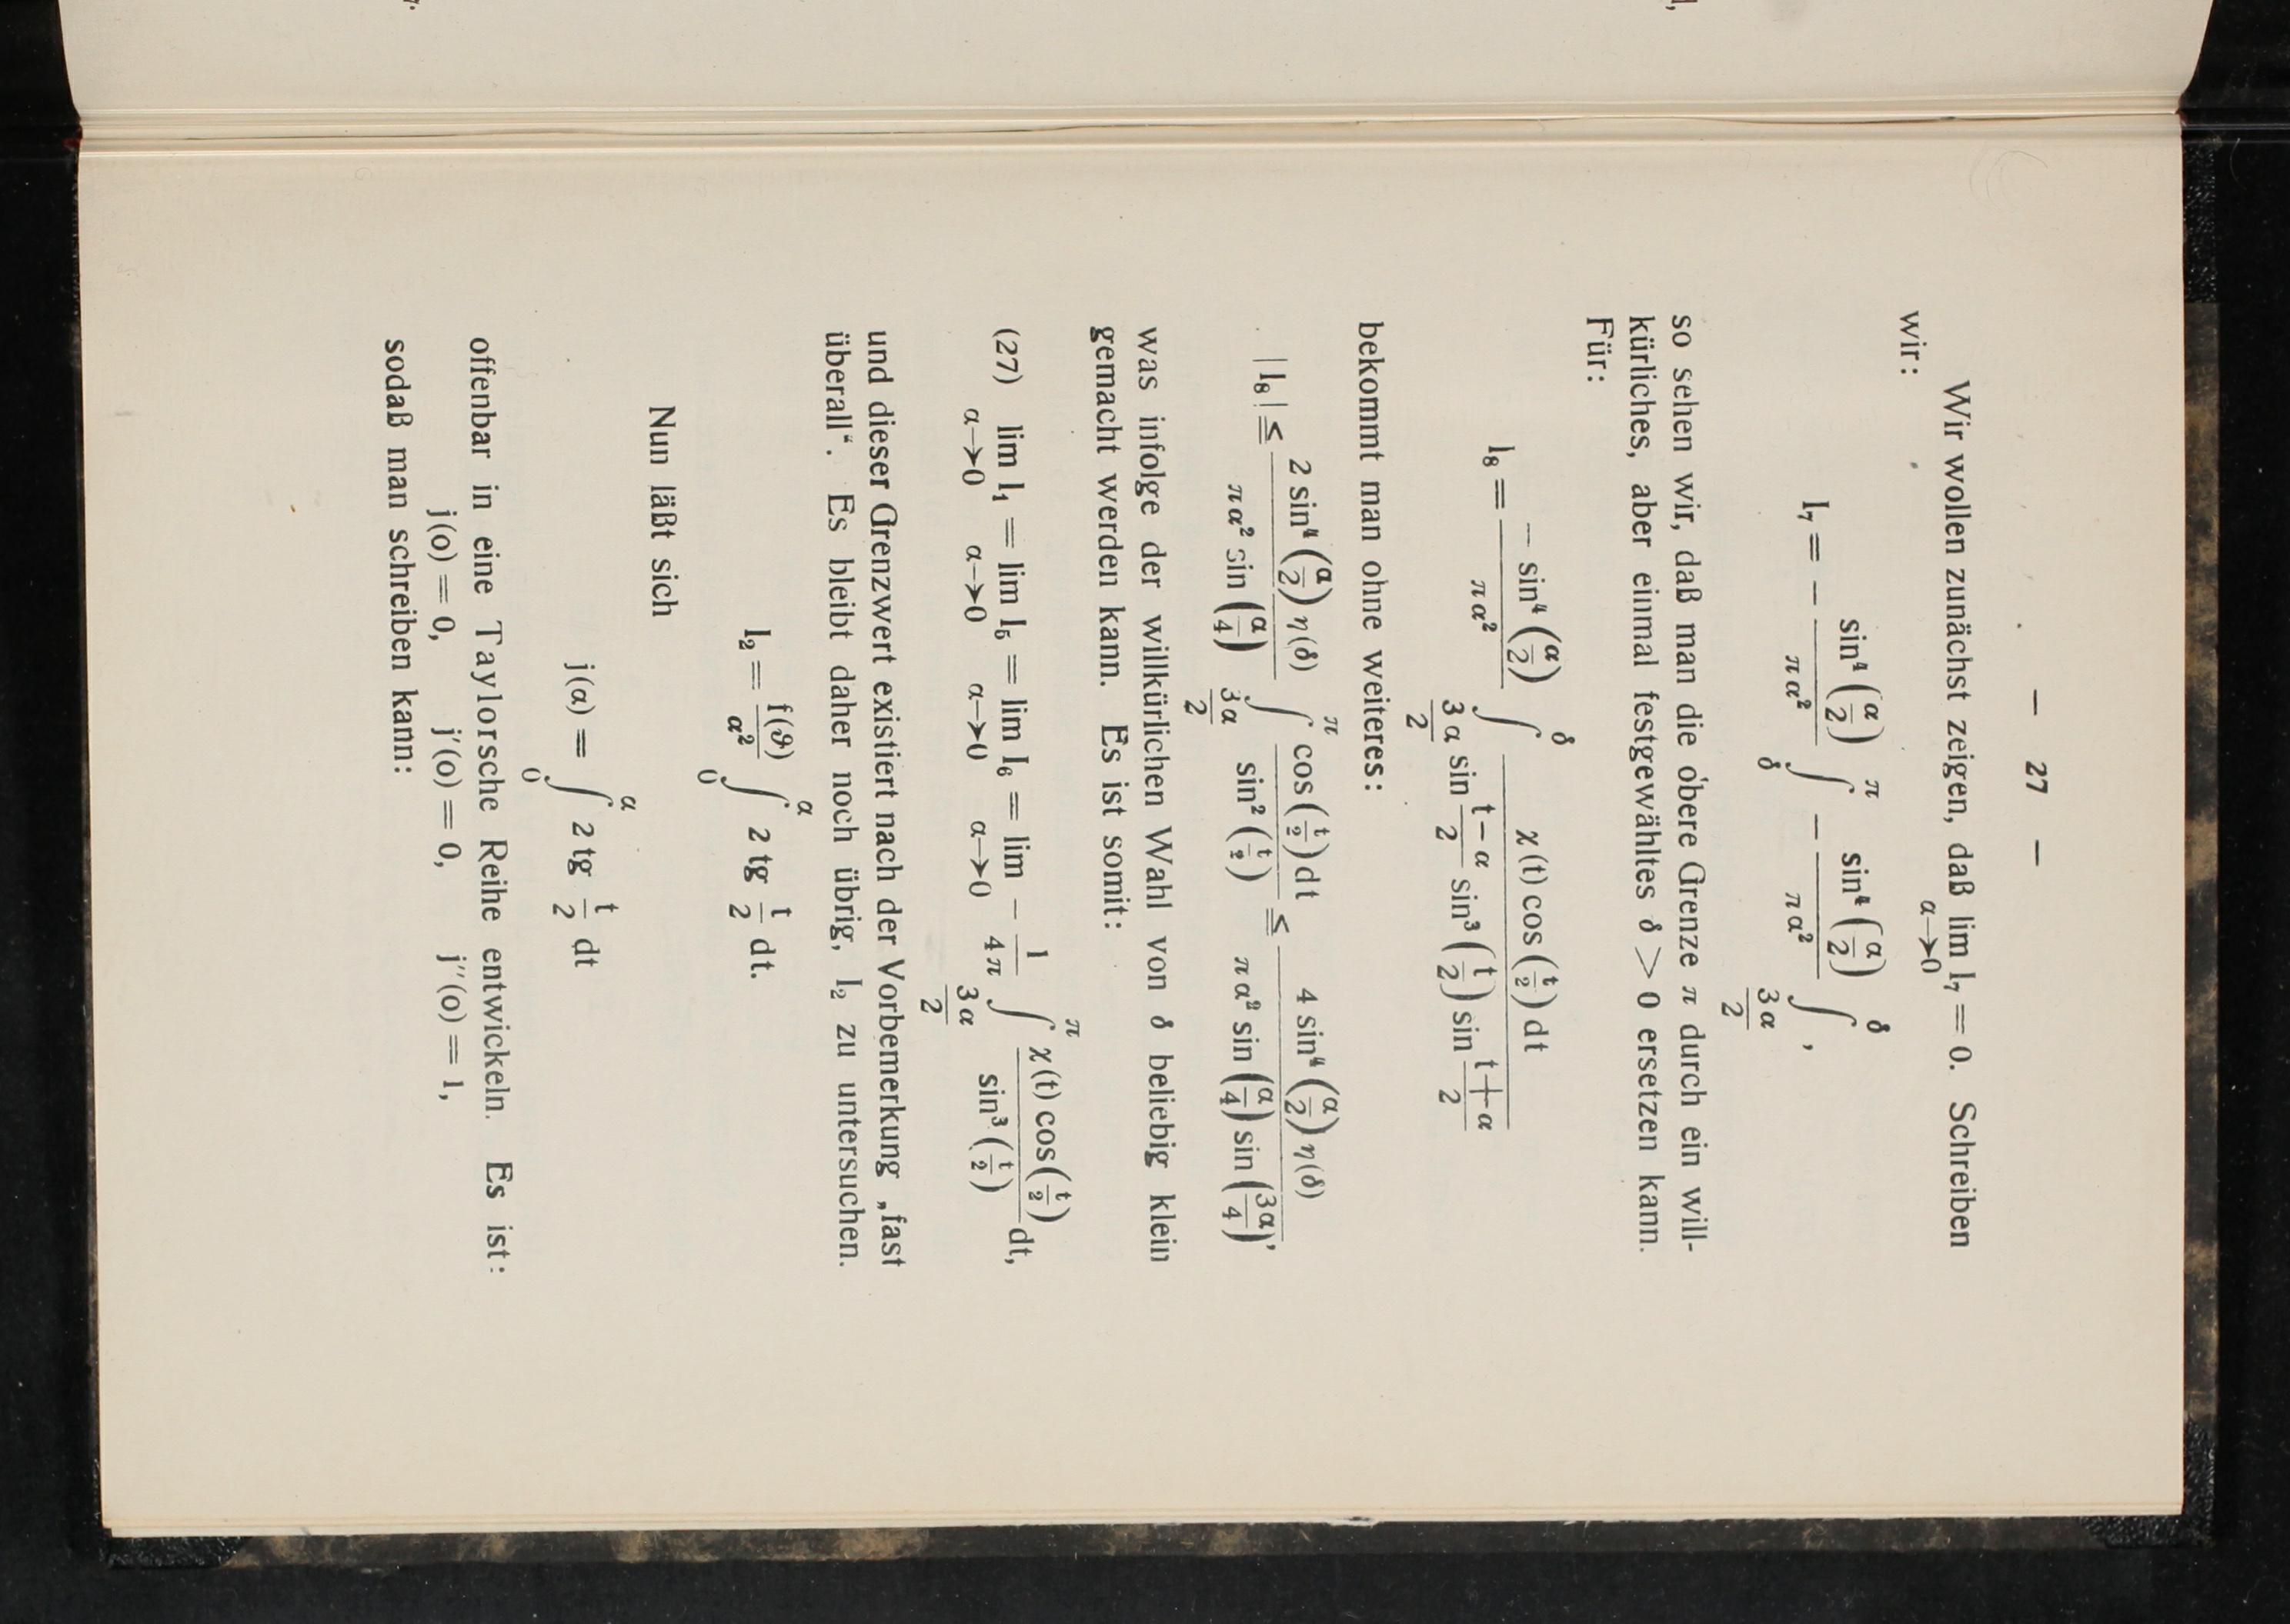 — 27 —
Wir wollen zunächst zeigen, daß lim I₇ = 0. Schreiben
α→0
wir:
I₇ = − sin⁴(α/2) / πα² ∫_δ^π − sin⁴(α/2) / πα² ∫_{3α/2}^δ ,
so sehen wir, daß man die obere Grenze π durch ein will-
kürliches, aber einmal festgewähltes δ > 0 ersetzen kann.
Für:
I₈ = − sin⁴(α/2) / πα² ∫_{3α/2}^δ χ(t) cos(t/2) dt / sin (t−α)/2 sin³(t/2) sin (t+α)/2
bekommt man ohne weiteres:
|I₈| ≦ 2 sin⁴(α/2) η(δ) / πα² sin(α/4) ∫_{3α/2}^π cos(t/2) dt / sin²(t/2) ≦ 4 sin⁴(α/2) η(δ) / πα² sin(α/4) sin(3α/4),
was infolge der willkürlichen Wahl von δ beliebig klein
gemacht werden kann. Es ist somit:
(27) lim I₁ = lim I₅ = lim I₆ = lim − 1/4π ∫_{3α/2}^π χ(t) cos(t/2) / sin³(t/2) dt,
α→0 α→0 α→0 α→0
und dieser Grenzwert existiert nach der Vorbemerkung „fast
überall“. Es bleibt daher noch übrig, I₂ zu untersuchen.
I₂ = f(ϑ)/α² ∫_0^α 2 tg t/2 dt.
Nun läßt sich
j(α) = ∫_0^α 2 tg t/2 dt
offenbar in eine Taylorsche Reihe entwickeln. Es ist:
j(o) = 0, j′(o) = 0, j′′(o) = 1,
sodaß man schreiben kann: